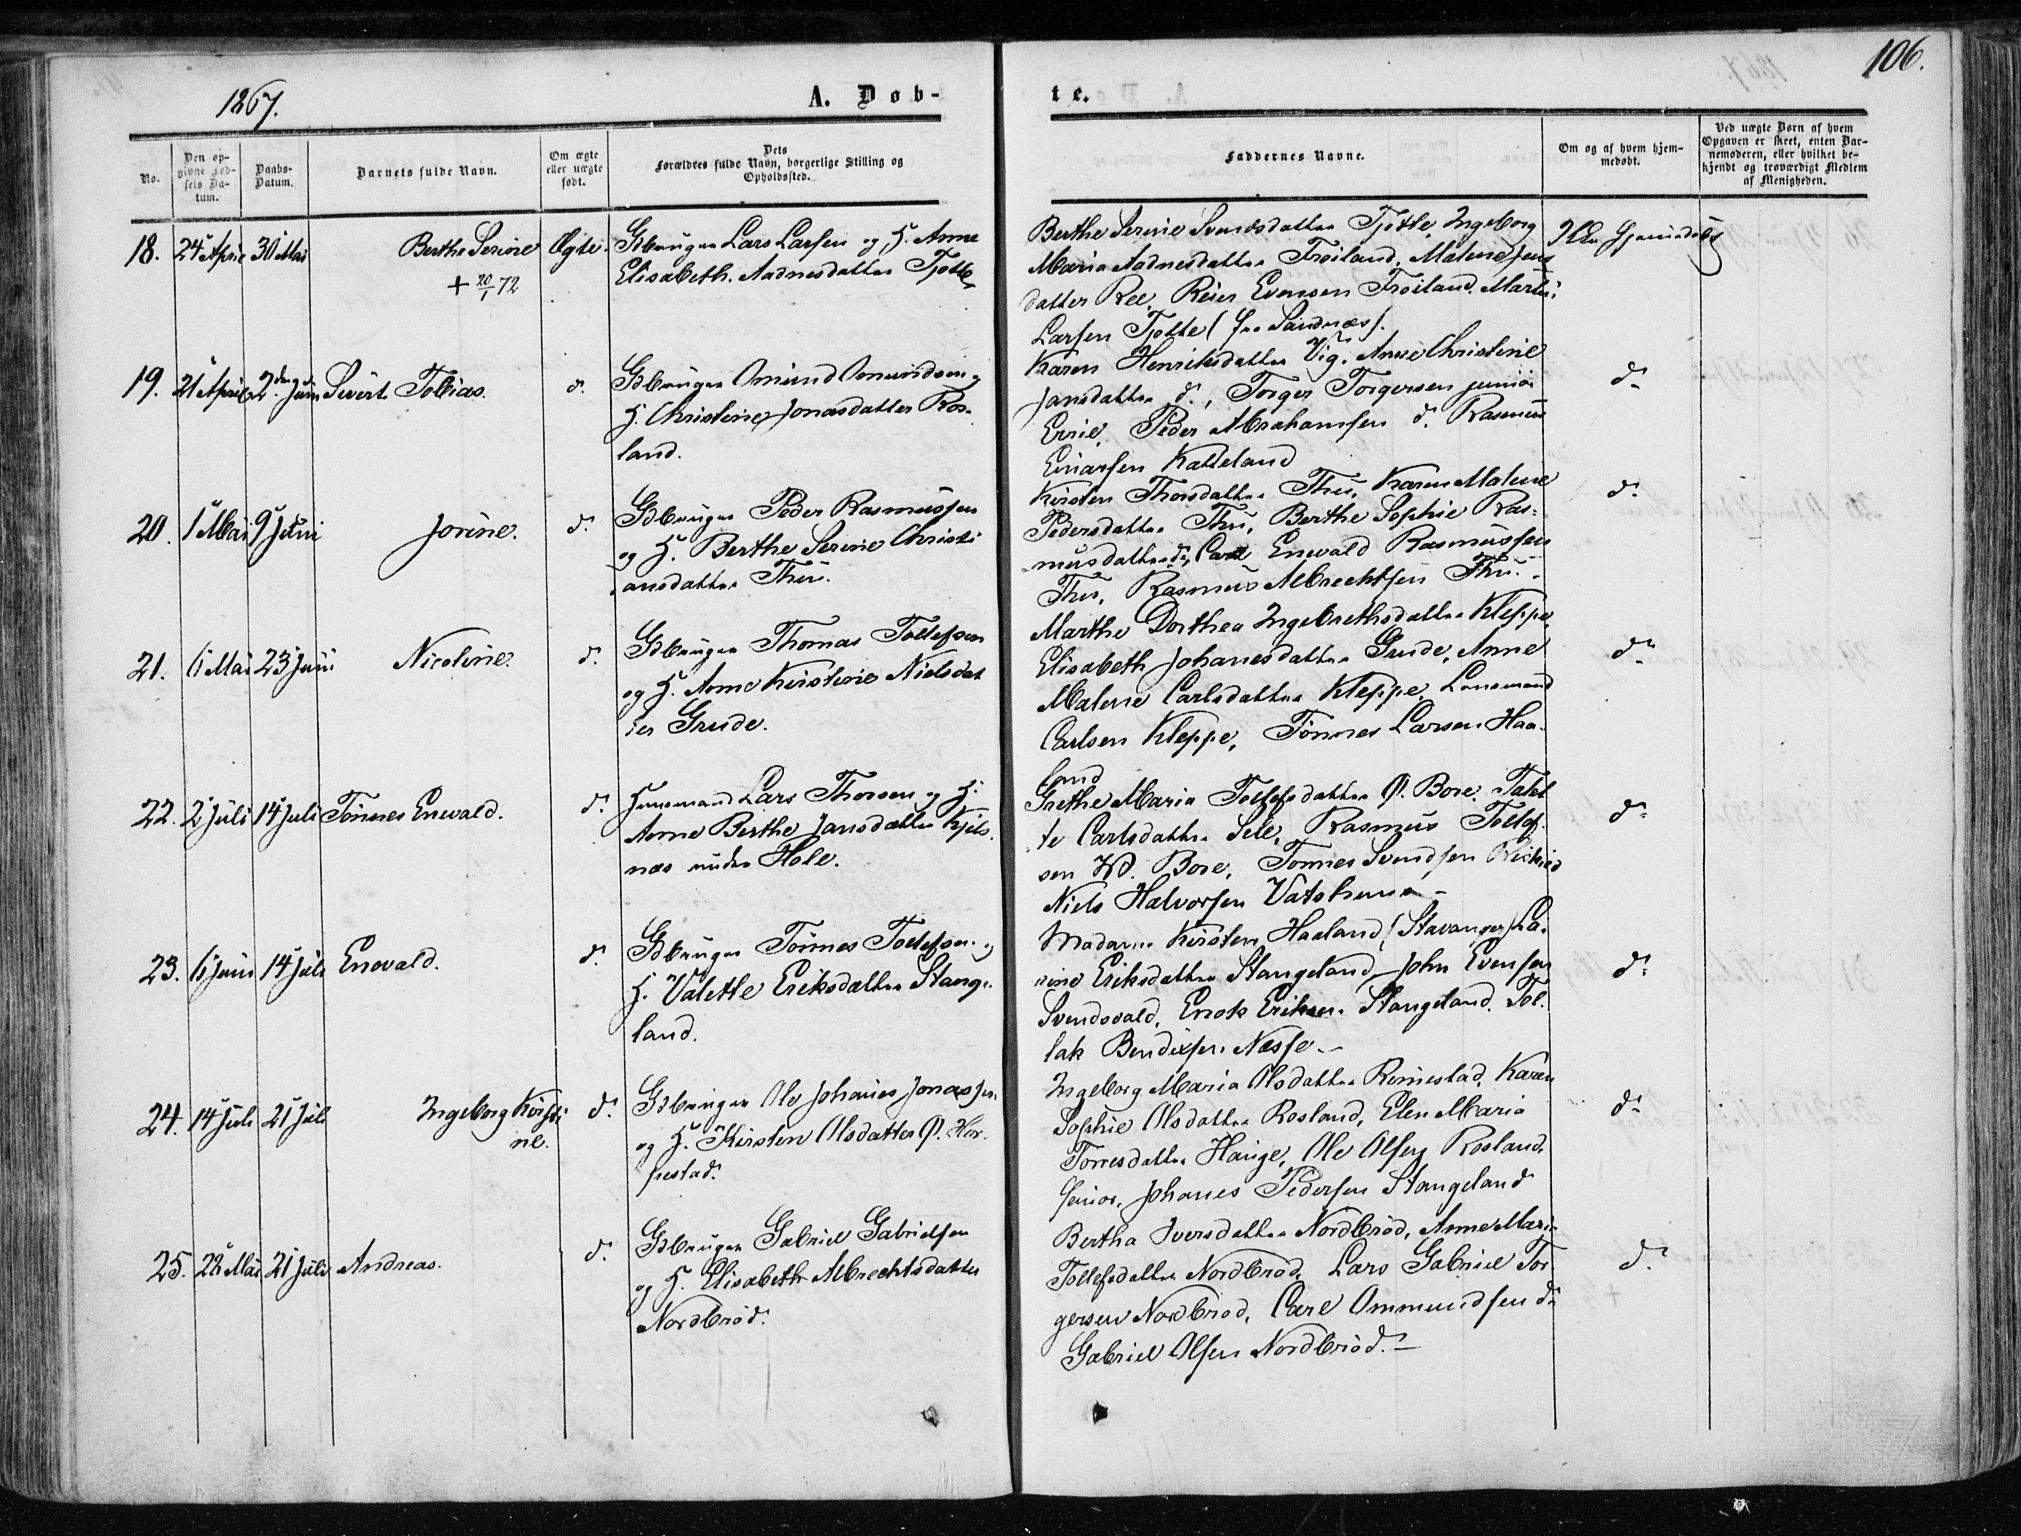 1867.
A. Døb-
te.
106.
No.
Den opgivne Fødsels Datum.
Daabs-Datum.
Barnets fulde Navn.
Om ægte eller uægte født.
Dets Forældres fulde Navn, borgerlige Stilling og Opholdssted.
Faddernes Navne.
Om og af hvem hjemmedøbt.
Ved uægte Børn af hvem Opgaven er skeet, enten Barnemoderen, eller hvilket bekjendt og troværdigt Medlem af Menigheden.
18. 24 April 30 Mai Berthe Serine Ægte.
+ 20/1 72
Gbruger Lars Larsen og H. Anne
Elisabeth Aadnesdatter Tjøtte
Berthe Serine Svendsdatter Tjøtte, Ingeborg
Maria Aadnesdatter Frøiland, Malene Jens
datter Ree, Reier Evensen Frøiland, Martin
Larsen Tjøtte (fra Sandnæs).
19. 21 April 2den Juni Sivert Tobias. d.
Gbruger Omund Omundsen og
H. Christine Jonasdatter Ros-
land.
Karen Henriksdatter Vig, Anne Christine
Jansdatter d., Torger Torgersen junior
Errie, Peder Abrahamsen d. Rasmus
Einarsen Katteland
d.
20. 1 Mai 9 Juni Jorine. d.
Gbruger Peder Rasmussen
og H. Berthe Serine Christi
ansdatter Thu.
Kirsten Thorsdatter Thu, Karen Malene
Pedersdatter Thu, Berthe Sophie Ras-
musdatter d., Carl Enevald Rasmussen
Thu, Rasmus Albrechtsen Thu.
d.
21. 6 Mai 23 Juni Nicoline. d.
Gbruger Thomas Tollefsen
og H. Anne Kirstine Nielsdat
ter Grude.
Marthe Dorthea Ingebrethsdatter Kleppe
Elisabeth Johanesdatter Grude, Anne
Malene Carlsdatter Kleppe, Lensmand
Carlsen Kleppe, Tønnes Larsen Haa-
land
d.
22. 2 Juli 14 Juli Tønnes Enevald. d.
Huusmand Lars Thorsen og H.
Anne Berthe Jansdatter Kjels
næs under Hole.
Grethe Maria Tollefsdatter Ø. Bore, Talet
te Carlsdatter Sele, Rasmus Tollef-
sen N. Bore, Tønnes Svendsen
Niels Halvorsen Vatshuus
d.
23. 6 Juni 14 Juli Enevald. d.
Gbruger Tønnes Tollefsen og
H. Valette Eriksdatter Stange
land.
Madame Kirsten Haaland (Stavanger) La-
rine Eriksdatter Stangeland, John Evensen
Svendsvald, Enok Eriksen Stangeland, Tol-
lak Bendixsen Næsse
d.
24. 14 Juli 21 Juli Ingeborg Kirsti
ne. d.
Gbruger Ole Johanes Jonassen
og H. Kirsten Olsdatter Ø. Hor-
pestad.
Ingeborg Maria Olsdatter Rimestad, Karen
Sophie Olsdatter Rosland, Elen Maria
Torresdatter Hauge, Ole Olsen Rosland
senior, Johanes Pedersen Stangeland
d.
25. 28 Mai 21 Juli Andreas. d.
Gbruger Gabriel Gabrielsen
og H. Elisabeth Albrechtsdatter
Nordbrød.
Bertha Iversdatter Nordbrød, Anne Maria
Tollefsdatter Nordbrød, Lars Gabriel Tor-
gersen Nordbrød, Carl Ommundsen d.
Gabriel Olsen Nordbrød.
d.